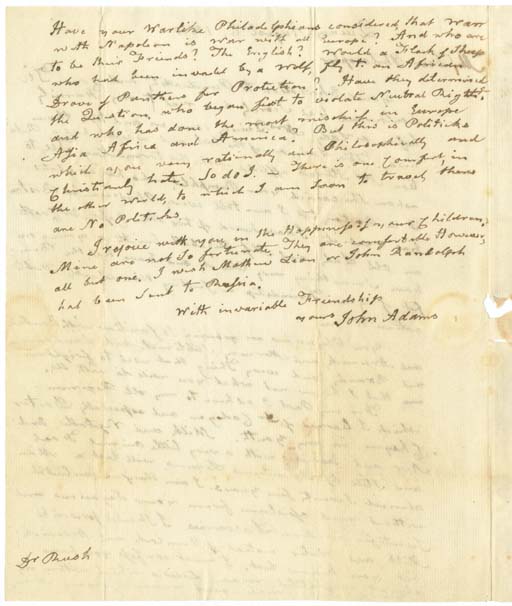 Have your Warlike Philadelphians considered, that Warr
with Napoleon is War with all Europe? And who are
to be their Friends? The English? Would a Flock of Sheep
who had been invaded by a Wolf, fly to an African
Drove of Panthers for Protection? Have they determined
the Question, who began first to violate Neutral Rights?
and who has done the most mischief in Europe
Asia Africa and America? But this is Politicks
which you very rationally and Philosophically and
Christianly hate. So do I. There is one Comfort, in
the other World, to which I am Soon to travel there
are No Politicks.
I rejoice with you, in the Happiness of your Children;
Mine are not So fortunate. They are comfortable However,
all but one. I wish Mathew Lion or John Randolph
had been Sent to Russia.
With invariable Friendship
yours John Adams
Dr Rush